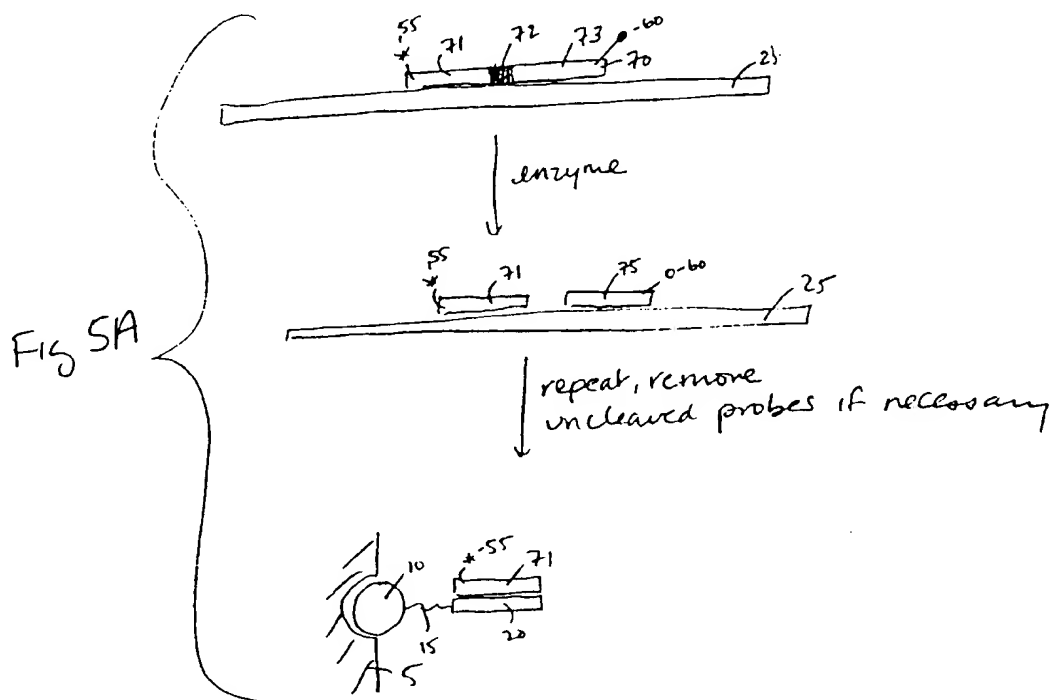 *55 71 72 73 -60 70 25
enzyme
*55 71 75 -60 25
Fig 5A
repeat, remove
uncleaved probes if necessary
10 *-55 71
15 20
5